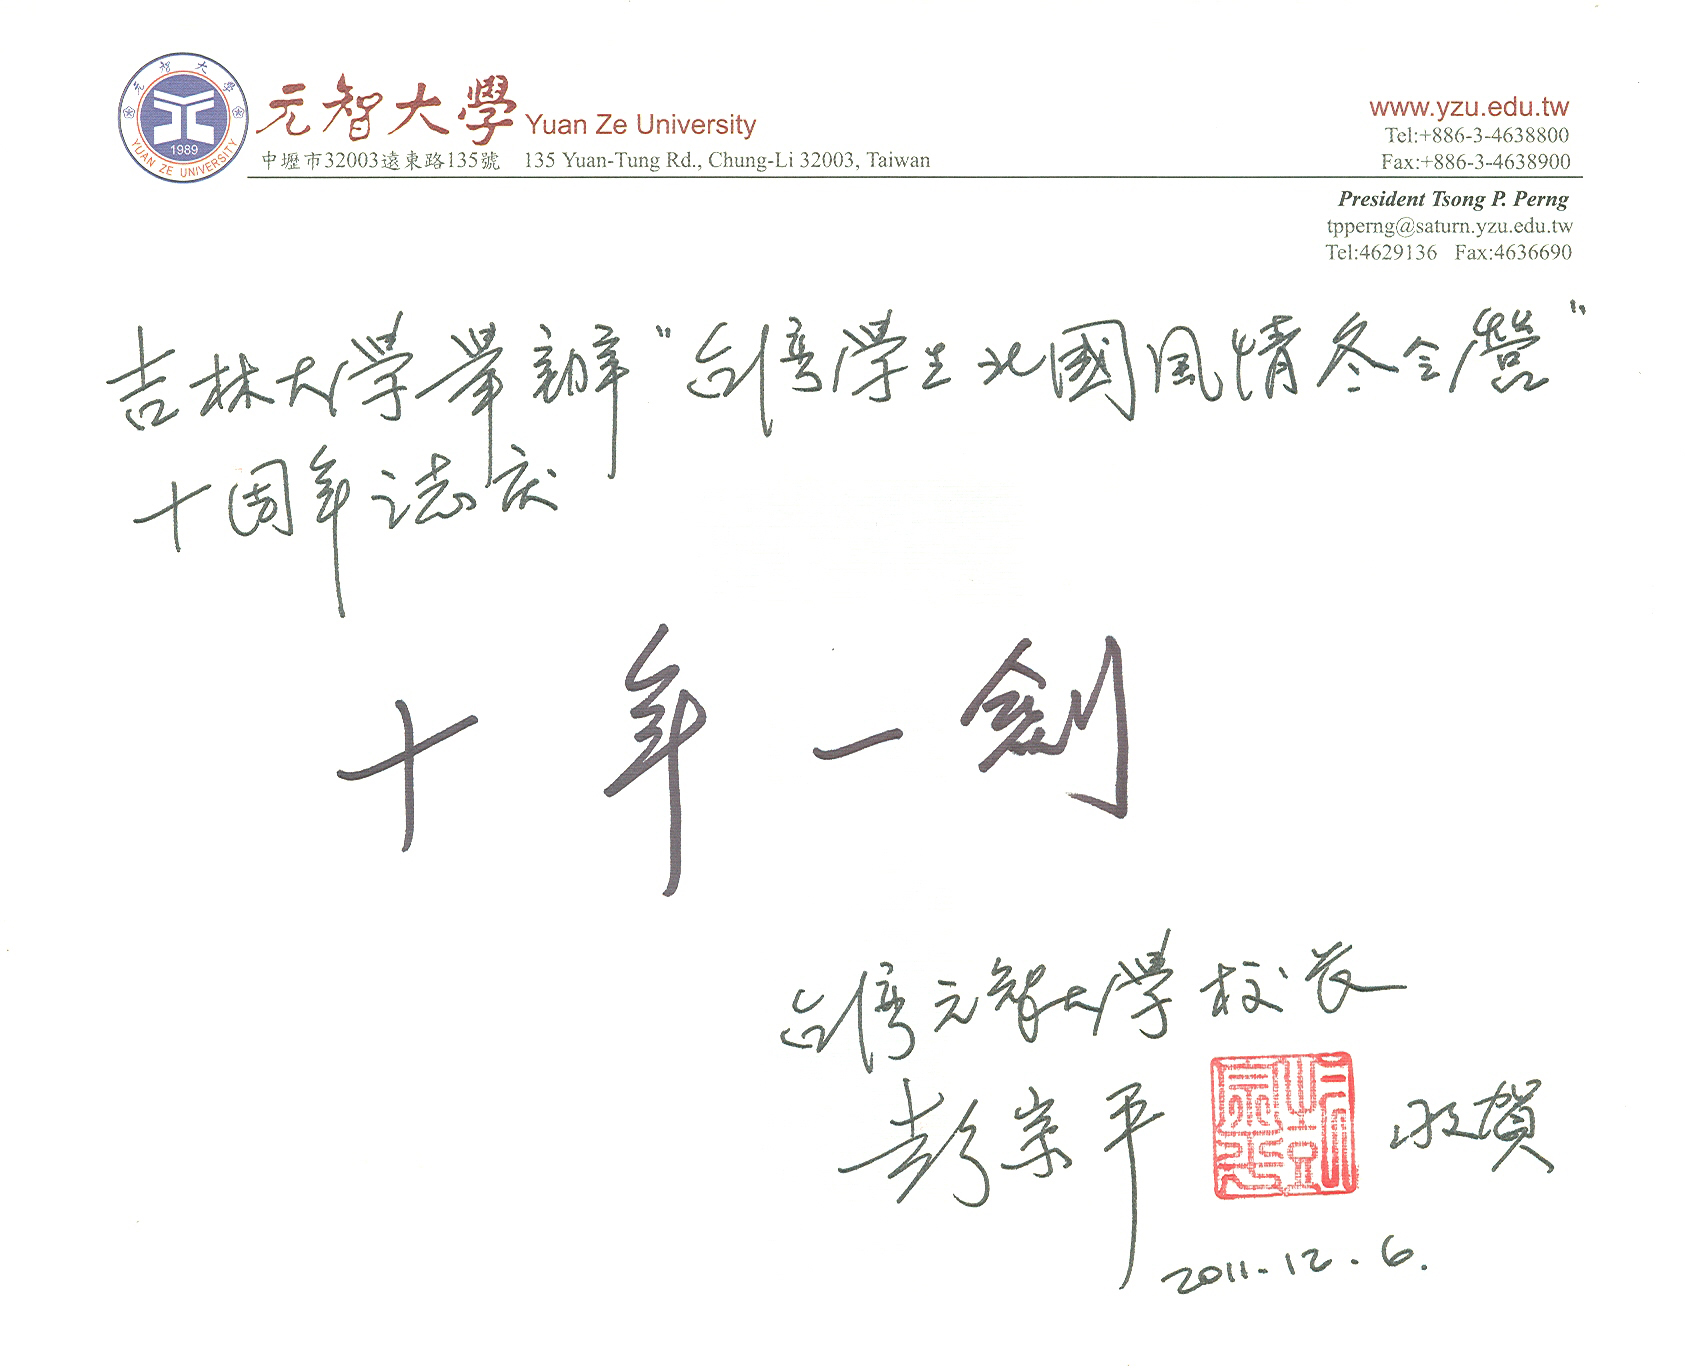 元智大學
YUAN ZE UNIVERSITY
1989
元智大學 Yuan Ze University
中壢市32003遠東路135號 135 Yuan-Tung Rd., Chung-Li 32003, Taiwan
www.yzu.edu.tw
Tel:+886-3-4638800
Fax:+886-3-4638900
President Tsong P. Perng
tpperng@saturn.yzu.edu.tw
Tel:4629136 Fax:4636690
吉林大學舉辦"台灣學生北國風情冬令營"
十周年誌庆
十年一劍
台灣元智大學校长
彭宗平 敬賀
彭宗平
2011.12.6.